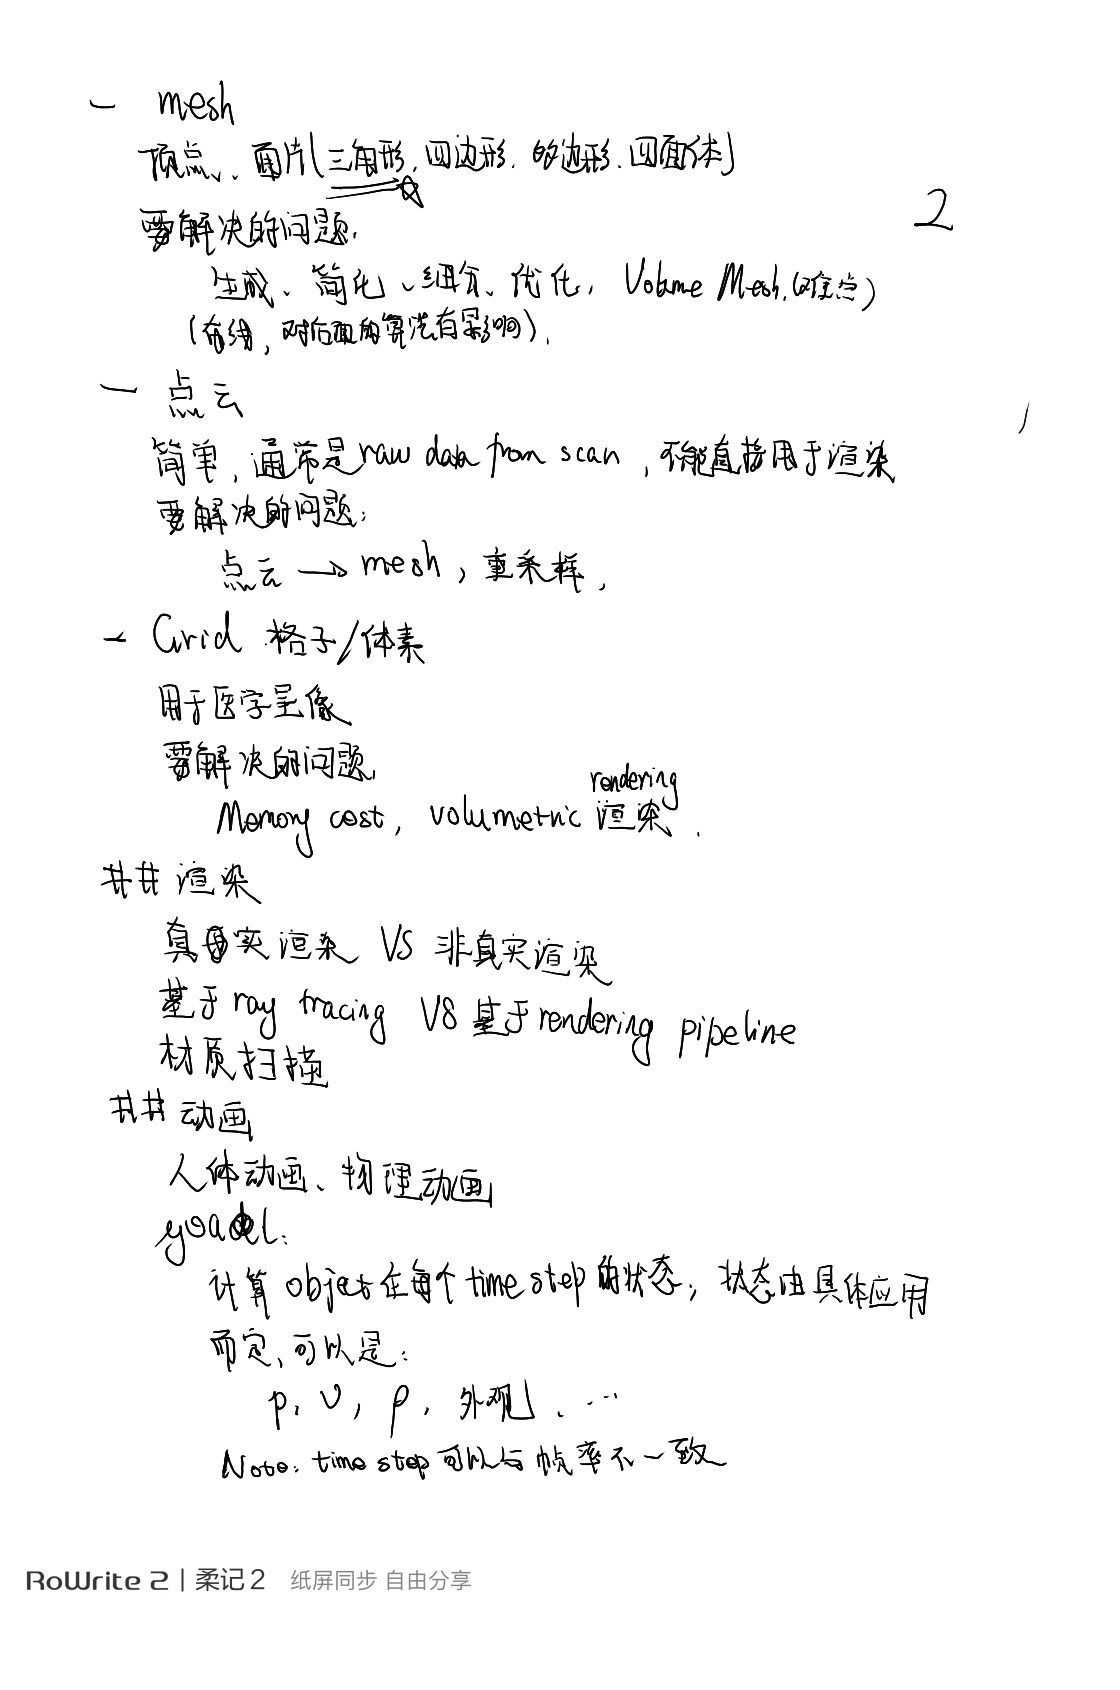 - mesh
顶点、面片(三角形,四边形.多边形.四面体)
2
要解决的问题.
生成、简化、细分、优化, Volume Mesh.(难点)
(布线,对后面的算法有影响).
- 点云
简单,通常是raw data from scan,不能直接用于渲染
要解决的问题:
点云 → mesh,重采样,
- Grid 格子/体素
用于医学呈像
要解决的问题,
rendering
Memory cost, volumetric 渲染.
## 渲染
真实渲染 VS 非真实渲染
基于ray tracing VS 基于rendering pipeline
材质扫描
## 动画
人体动画、物理动画
goal:
计算 object 在每个 time step 的状态,状态由具体应用
而定,可以是:
p, v, ρ, 外观、...
Note: time step 可以与帧率不一致
RoWrite 2 | 柔记 2 纸屏同步 自由分享